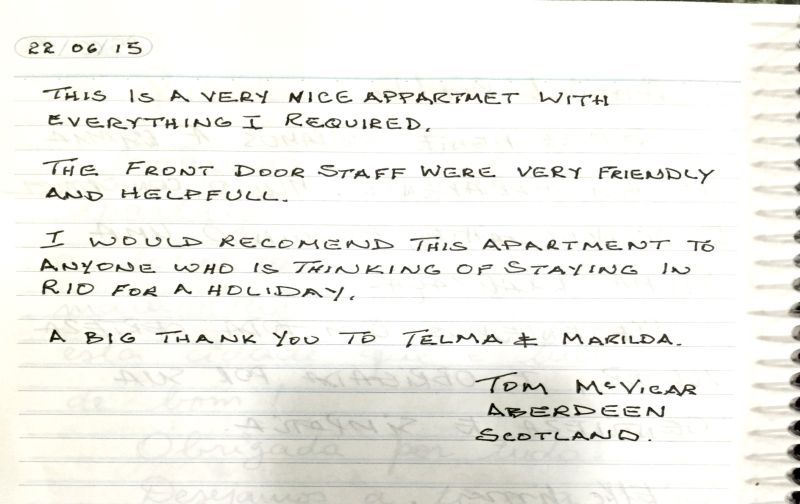 22/06/15
THIS IS A VERY NICE APPARTMET WITH
EVERYTHING I REQUIRED.
THE FRONT DOOR STAFF WERE VERY FRIENDLY
AND HELPFULL.
I WOULD RECOMEND THIS APARTMENT TO
ANYONE WHO IS THINKING OF STAYING IN
RIO FOR A HOLIDAY.
A BIG THANK YOU TO TELMA & MARILDA.
TOM McVICAR
ABERDEEN
SCOTLAND.